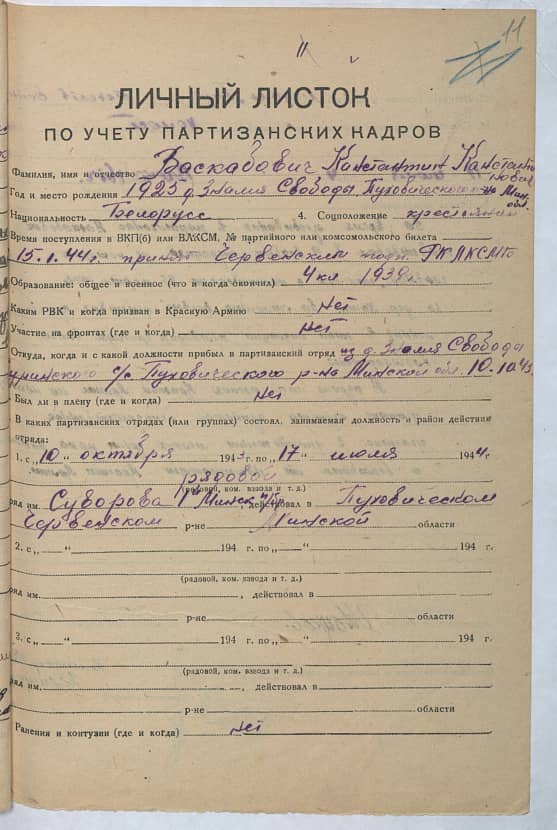 11
11
ЛИЧНЫЙ ЛИСТОК
ПО УЧЕТУ ПАРТИЗАНСКИХ КАДРОВ
Фамилия, имя и отчество Баскабович Константин Константи
нович
Год и место рождения 1925 д. Знамя Свободы Пуховического р-на Мин.
обл.
Национальность Белорусс 4. Соцположение крестьянин
Время поступления в ВКП(б) или ВЛКСМ, № партийного или комсомольского билета
15.1.44г. принят Червенским РКЛКСМБ
Образование: общее и военное (что и когда окончил) 4 кл 1939г.
Каким РВК и когда призван в Красную Армию Нет
Участие на фронтах (где и когда) Нет
Откуда, когда и с какой должности прибыл в партизанский отряд из д. Знамя Свободы
с/с Пуховического р-на Минской обл. 10.10.43
Был ли в плену (где и когда) Нет
В каких партизанских отрядах (или группах) состоял, занимаемая должность и район действия
отряда:
1. с „10" октября 1943 г. по „17" июля 1944 г.
рядовой
(рядовой, ком. взвода и т. д.)
ряд им. Суворова 1 Минск. п/бр, действовал в Пуховическом
Червенском р-не Минской области
2. с „ " 194 г. по „ " 194 г.
(рядовой, ком. взвода и т. д.)
ряд им. , действовал в
р-не области
3. с „ " 194 г. по „ " 194 г.
(рядовой, ком. взвода и т. д.)
ряд им. , действовал в
р-не области
Ранения и контузии (где и когда) Нет